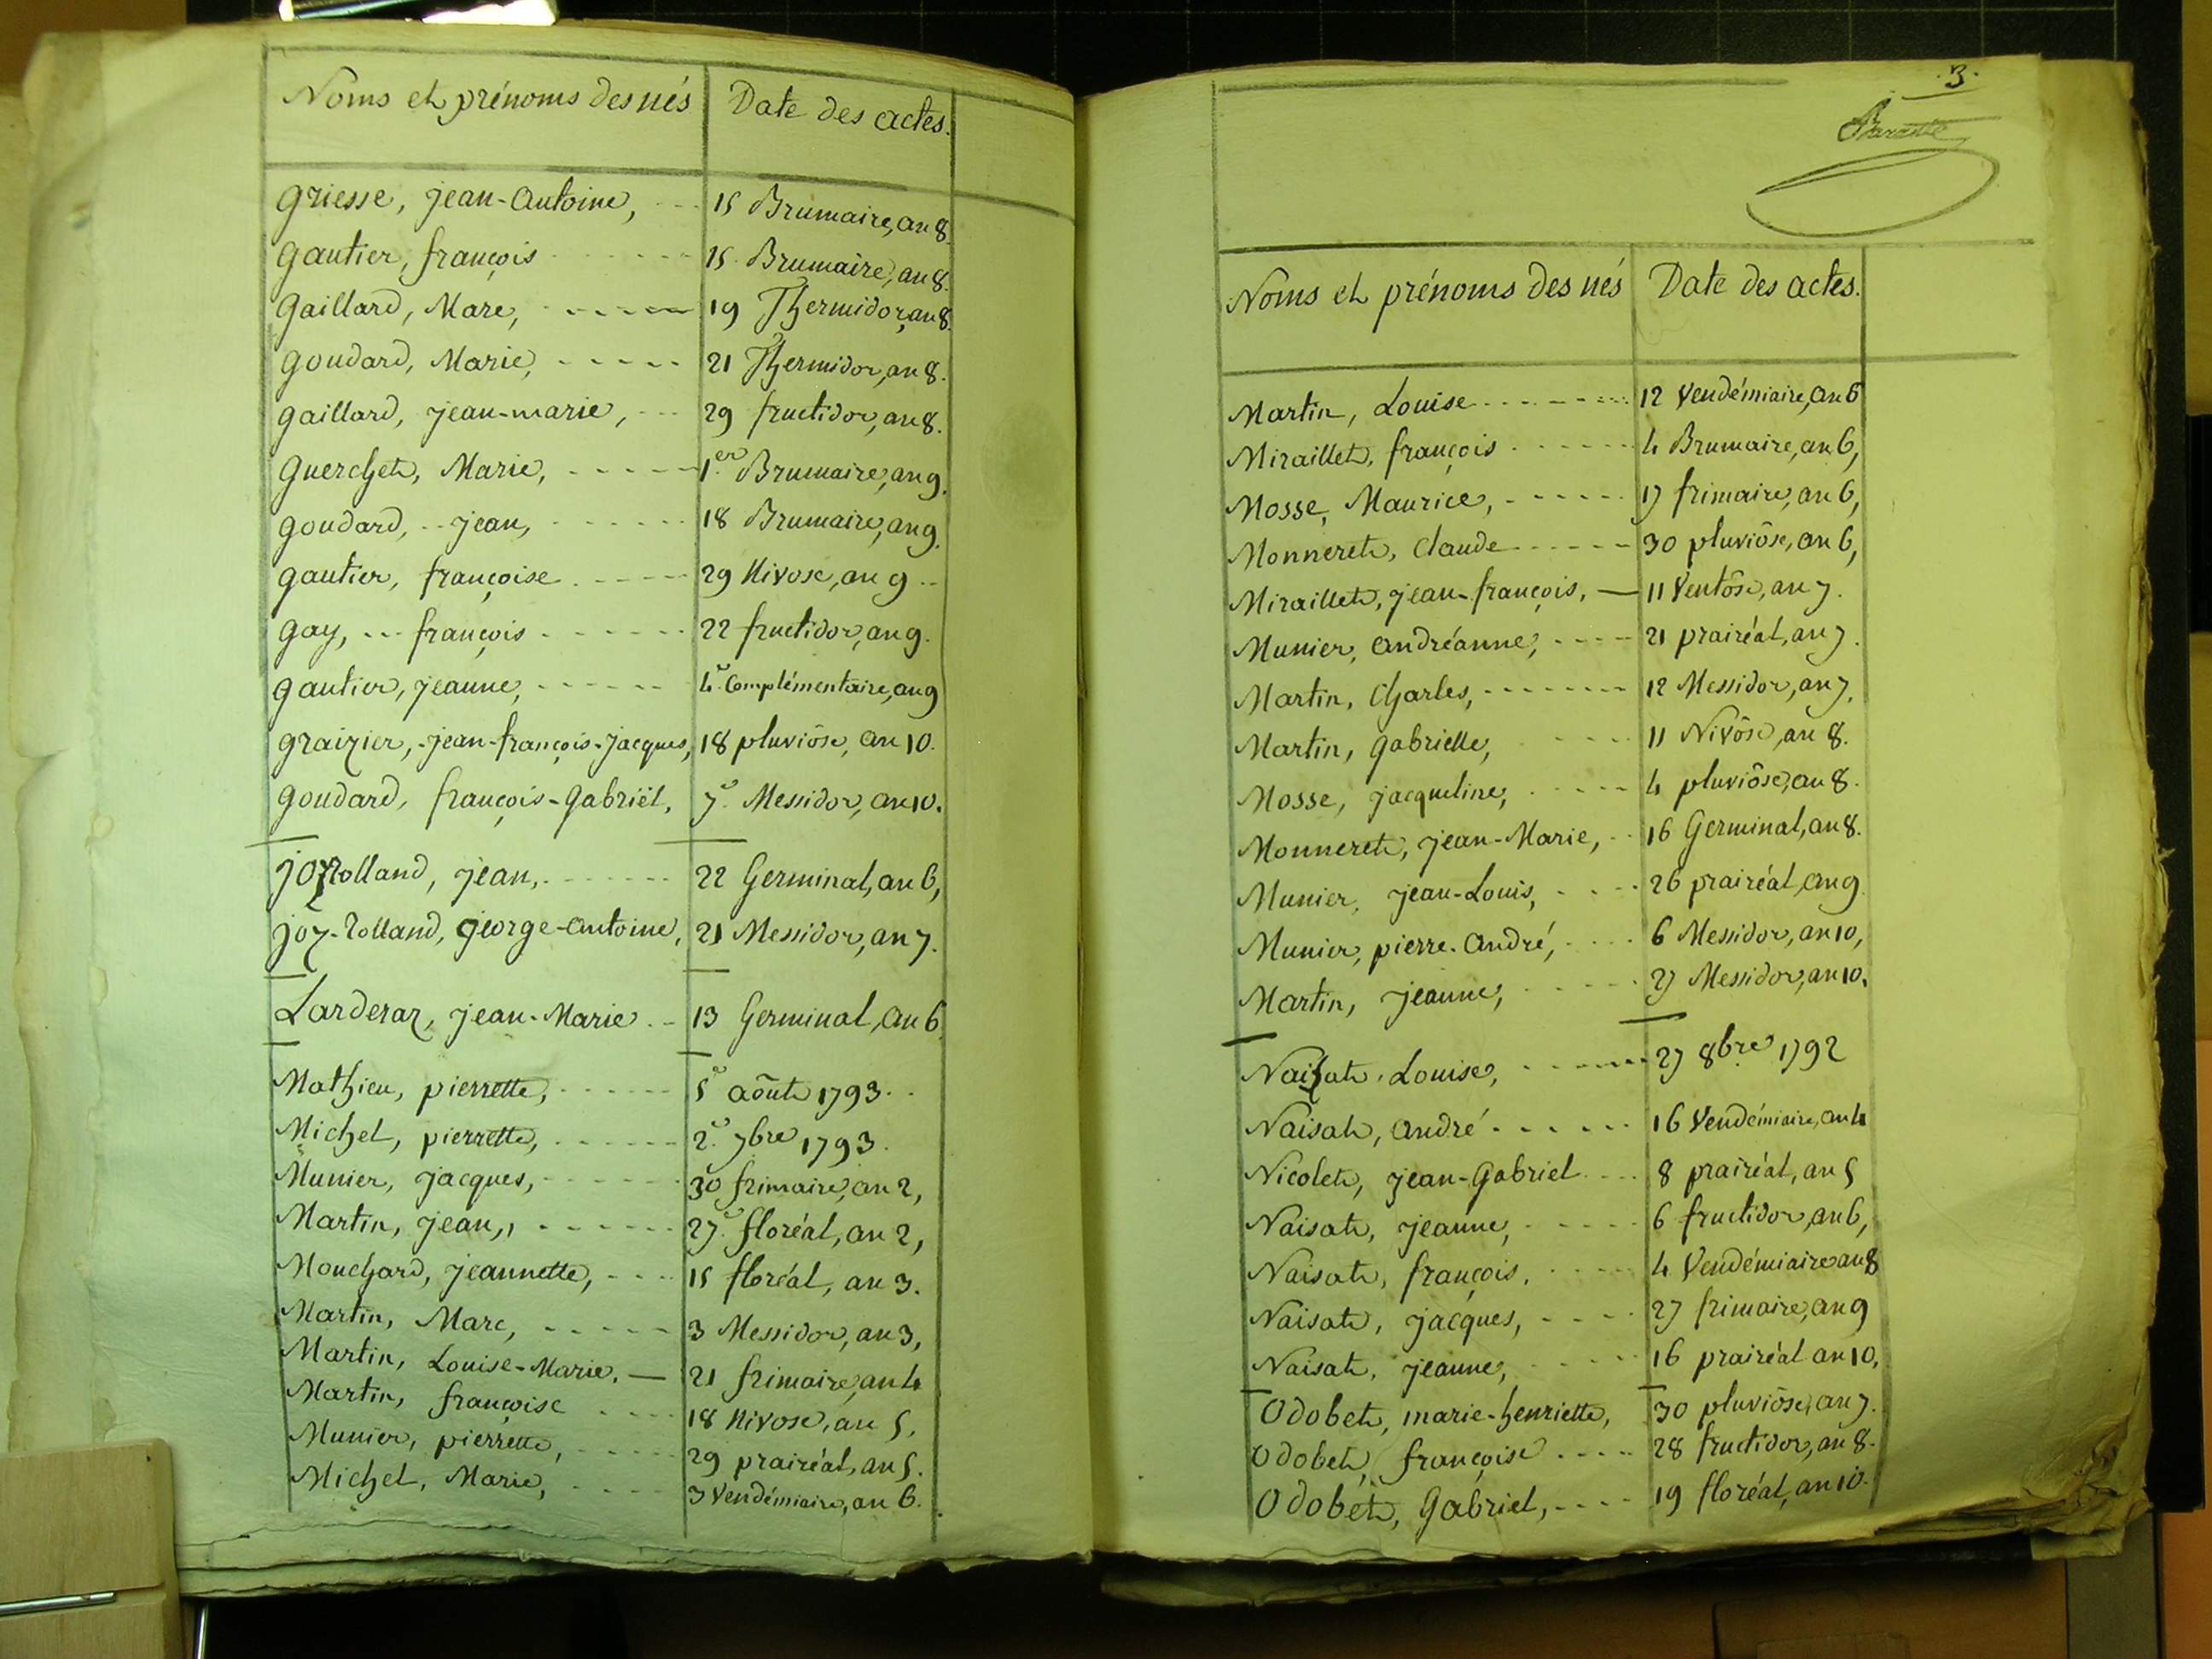 Noms et prénoms des nés Date des actes.
Griesse, jean-antoine, 15 Brumaire, an 8.
Gautier, françois 15 Brumaire, an 8.
Gaillard, Marc, 19 Thermidor, an 8.
Goudard, Marie, 21 Thermidor, an 8.
Gaillard, jean-marie, 29 fructidor, an 8.
Guerchet, Marie, 1.er Brumaire, an 9.
Goudard, jean, 18 Brumaire, an 9.
Gautier, françoise 29 Nivose, an 9
Gay, françois 22 fructidor, an 9.
Gautier, jeanne, 4.e Complémentaire, an 9
Graizier, jean-françois-jacques, 18 pluviôse, an 10.
Goudard, françois-Gabriël, 7.e Messidor, an 10.
joy-rolland, jean, 22 Germinal, an 6,
joy-rolland, george-antoine, 21 Messidor, an 7.
Larderaz, jean-Marie 13 Germinal, an 6.
Mathieu, pierrette, 5.e août 1793.
Michel, pierrette, 2.e 7bre 1793.
Munier, jacques, 30 frimaire, an 2,
Martin, jean, 27.e floréal, an 2,
Mouchard, jeannette, 15 floréal, an 3.
Martin, Marc, 3 Messidor, an 3,
Martin, Louise-Marie, 21 frimaire, an 4
Martin, françoise 18 Nivose, an 5,
Munier, pierrette, 29 prairéal, an 5.
Michel, Marie, 3 Vendémiaire, an 6.
.3.
Noms et prénoms des nés Date des actes.
Martin, Louise 12 Vendémiaire, an 6
Miraillet, françois 4 Brumaire, an 6,
Mosse, Maurice, 17 frimaire, an 6,
Monneret, Claude 30 pluviôse, an 6,
Miraillet, jean-françois, 11 Ventôse, an 7.
Munier, andréanne, 21 prairéal, an 7.
Martin, Charles, 12 Messidor, an 7.
Martin, gabrielle, 11 Nivôse, an 8.
Mosse, jacqueline, 4 pluviôse, an 8.
Monneret, jean-Marie, 16 Germinal, an 8.
Munier, jean-Louis, 26 prairéal, an 9.
Munier, pierre-andré, 6 Messidor, an 10,
Martin, jeanne, 27 Messidor, an 10.
Naisat, Louise, 27 8bre 1792
Naisat, andré 16 Vendémiaire, an 4
Nicolet, jean-Gabriel 8 prairéal, an 5
Naisat, jeanne, 6 fructidor, an 6,
Naisat, françois, 4 Vendémiaire an 8
Naisat, jacques, 27 frimaire, an 9
Naisat, jeanne, 16 prairéal an 10,
Odobet, marie-henriette, 30 pluviôse, an 7.
Odobet, françoise 28 fructidor, an 8.
Odobet, Gabriel, 19 floréal, an 10.